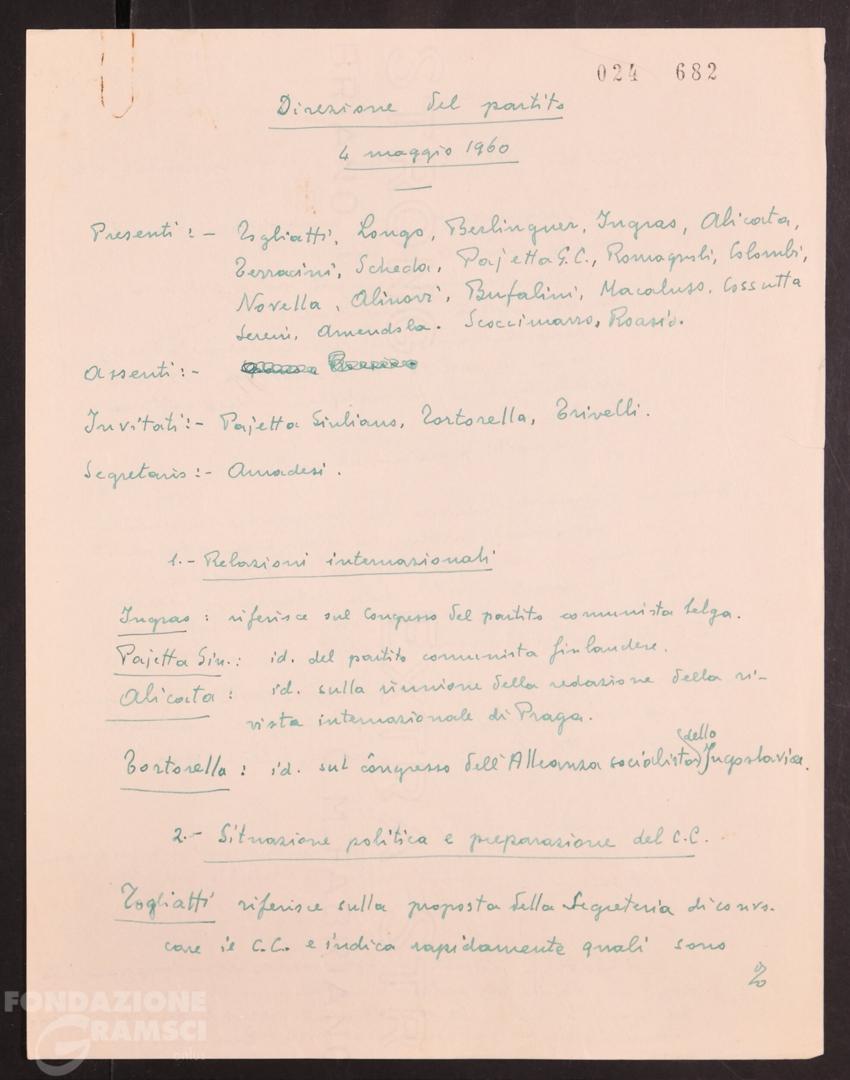 024 682
Direzione del partito
4 maggio 1960
Presenti : - Togliatti, Longo, Berlinguer, Ingrao, Alicata,
Terracini, Scheda, Pajetta G.C., Romagnoli, Colombi,
Novella, Alinovi, Bufalini, Macaluso, Cossutta
Sereni, Amendola. Scoccimarro, Roasio.
Assenti : -
Invitati : - Pajetta Giuliano, Tortorella, Trivelli.
Segretario : - Amadesi.
1. - Relazioni internazionali
Ingrao : riferisce sul Congresso del partito comunista belga.
Pajetta Giu. : id. del partito comunista finlandese.
Alicata : id. sulla riunione della redazione della ri-
vista internazionale di Praga.
Tortorella : id. sul congresso dell'Alleanza socialista della Jugoslavia.
2. - Situazione politica e preparazione del C.C.
Togliatti riferisce sulla proposta della Segreteria di convo-
care il C.C. e indica rapidamente quali sono
FONDAZIONE
GRAMSCI